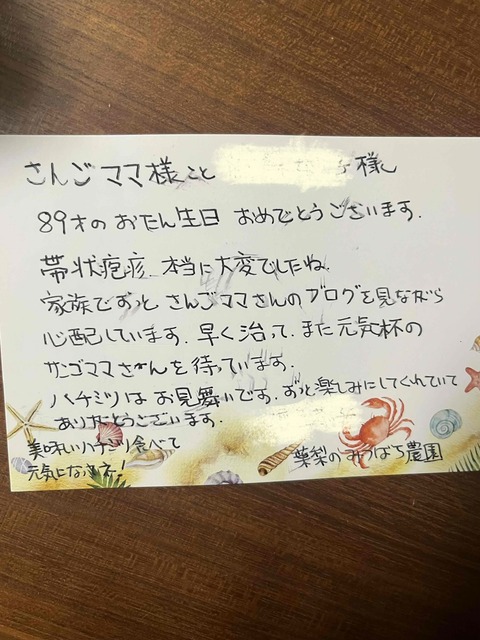 さんごママ様こと 様
89才の おたん生日 おめでとうございます.
帯状疱疹. 本当に大変でしたね.
家族でずっと さんごママさんのブログを見ながら
心配しています. 早く治って. また元気杯の
サンゴママさんを待っています.
ハチミツは お見舞いです. ずっと楽しみにしてくれていて
ありがとうございます.
美味しいハチミツ食べて
元気になってネ!
のみつばち農園